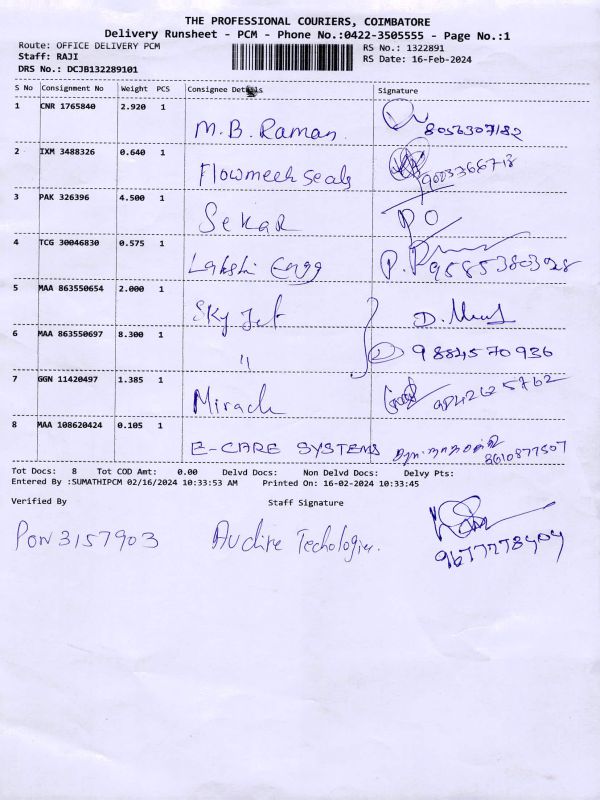 THE PROFESSIONAL COURIERS, COIMBATORE
Delivery Runsheet - PCM - Phone No.:0422-3505555 - Page No.:1
Route: OFFICE DELIVERY PCM RS No.: 1322891
Staff: RAJI RS Date: 16-Feb-2024
DRS No.: DCJB132289101
S No Consignment No Weight PCS Consignee Details Signature
1 CNR 1765840 2.920 1 M.B. Raman 8056307182
2 IXM 3488326 0.640 1 Flowmech Seals 9003366718
3 PAK 326396 4.500 1 Sekar PO
4 TCG 30046830 0.575 1 Lakshi Engg P.P 9585380328
5 MAA 863550654 2.000 1 Sky Jet D.
6 MAA 863550697 8.300 1 " 9884570936
7 GGN 11420497 1.385 1 Mirach 9842625762
8 MAA 108620424 0.105 1 E-CARE SYSTEMS 8610877507
Tot Docs: 8 Tot COD Amt: 0.00 Delvd Docs: Non Delvd Docs: Delvy Pts:
Entered By :SUMATHIPCM 02/16/2024 10:33:53 AM Printed On: 16-02-2024 10:33:45
Verified By Staff Signature
PON 3157903 Audire Techologies.
9677278404